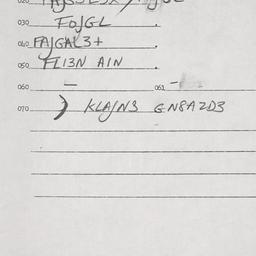 030 FOJGL .
040 FAJGAL3+
050 FL13N A1N
060 — 061 -
070 ) KLAJN3 GN8A2D3